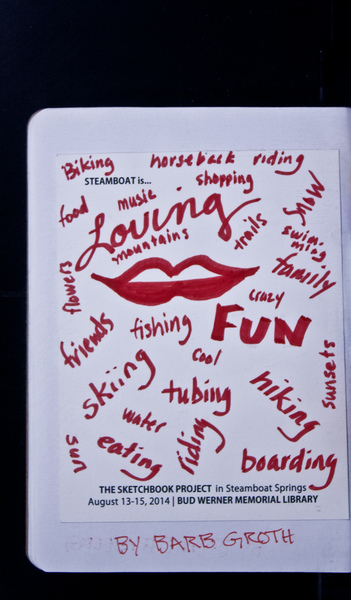 Biking horseback riding
STEAMBOAT is...
shopping
food
music
Loving
snow
trails
swim-
ming
mountains
family
flowers
crazy
friends
fishing
FUN
cool
skiing
tubing
hiking
sunsets
water
riding
sun
eating
boarding
THE SKETCHBOOK PROJECT in Steamboat Springs
August 13-15, 2014 | BUD WERNER MEMORIAL LIBRARY
BY BARB GROTH